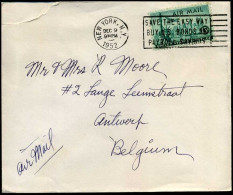 NEW YORK, N.Y.
DEC 9
1952
AIR MAIL
SAVE THE EASY WAY
BUY U.S. BONDS
PAYROLL SAVINGS
Mr & Mrs R Moore
#2 Lange Leemstraat
Antwerp
Belgium
Air Mail